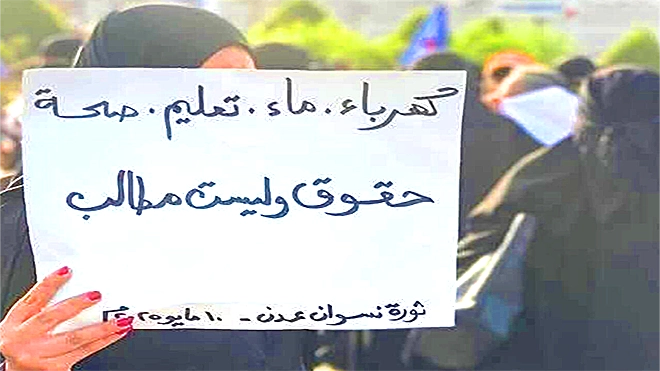 كهرباء . ماء . تعليم . صحة
حقوق وليست مطالب
ثورة نسوان عدن - ١٠ مايو ٢٠٢٥م